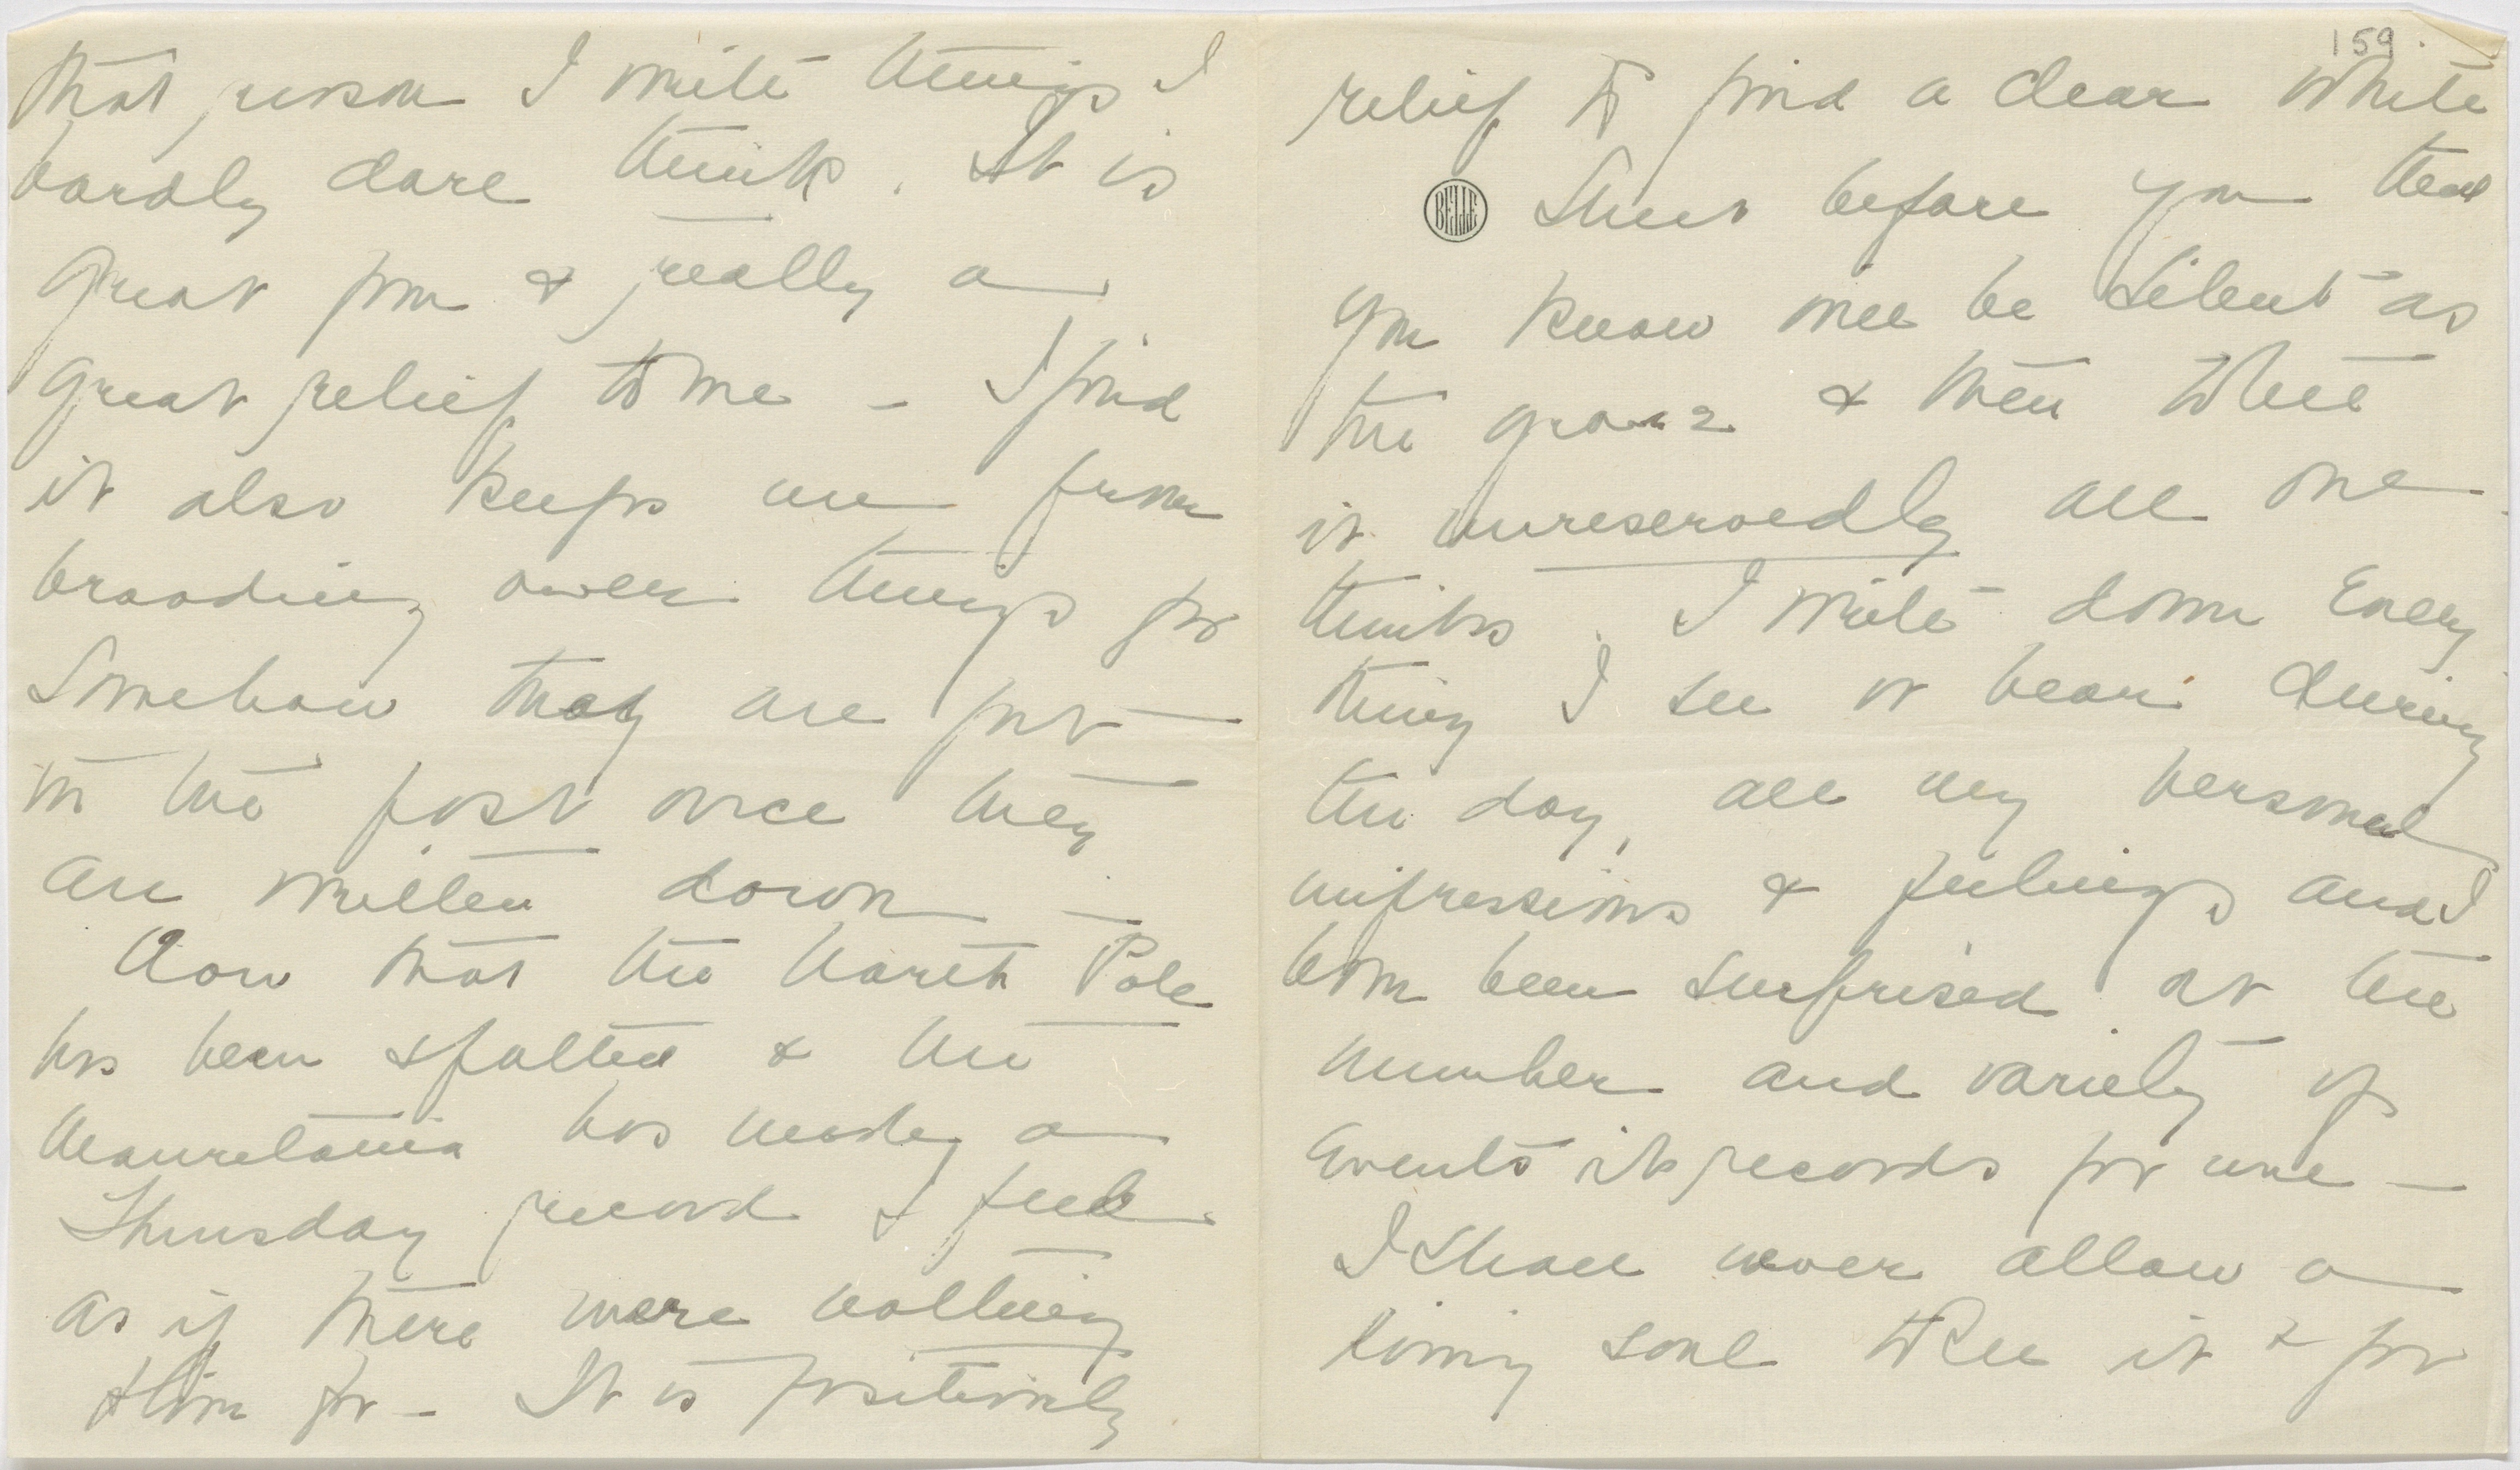 that reason I write things I
hardly dare think. It is
great fun & really a
great relief to me – I find
it also keeps me from
brooding over things for
somehow they are put
in the past once they
are written down —
Now that the North Pole
has been spotted & the
Mauretania has made a
Thursday record I feel
as if there were nothing
to live for – It is positively
159
relief to find a clear white
BELLE
sheet before you that
you know will be silent as
the grave & then tell
it unreservedly all one
thinks. I write down every
thing I see or hear during
the day, all my personal
impressions & feelings and I
have been surprised at the
number and variety of
events it records for me —
I shall never allow a
living soul to see it & for